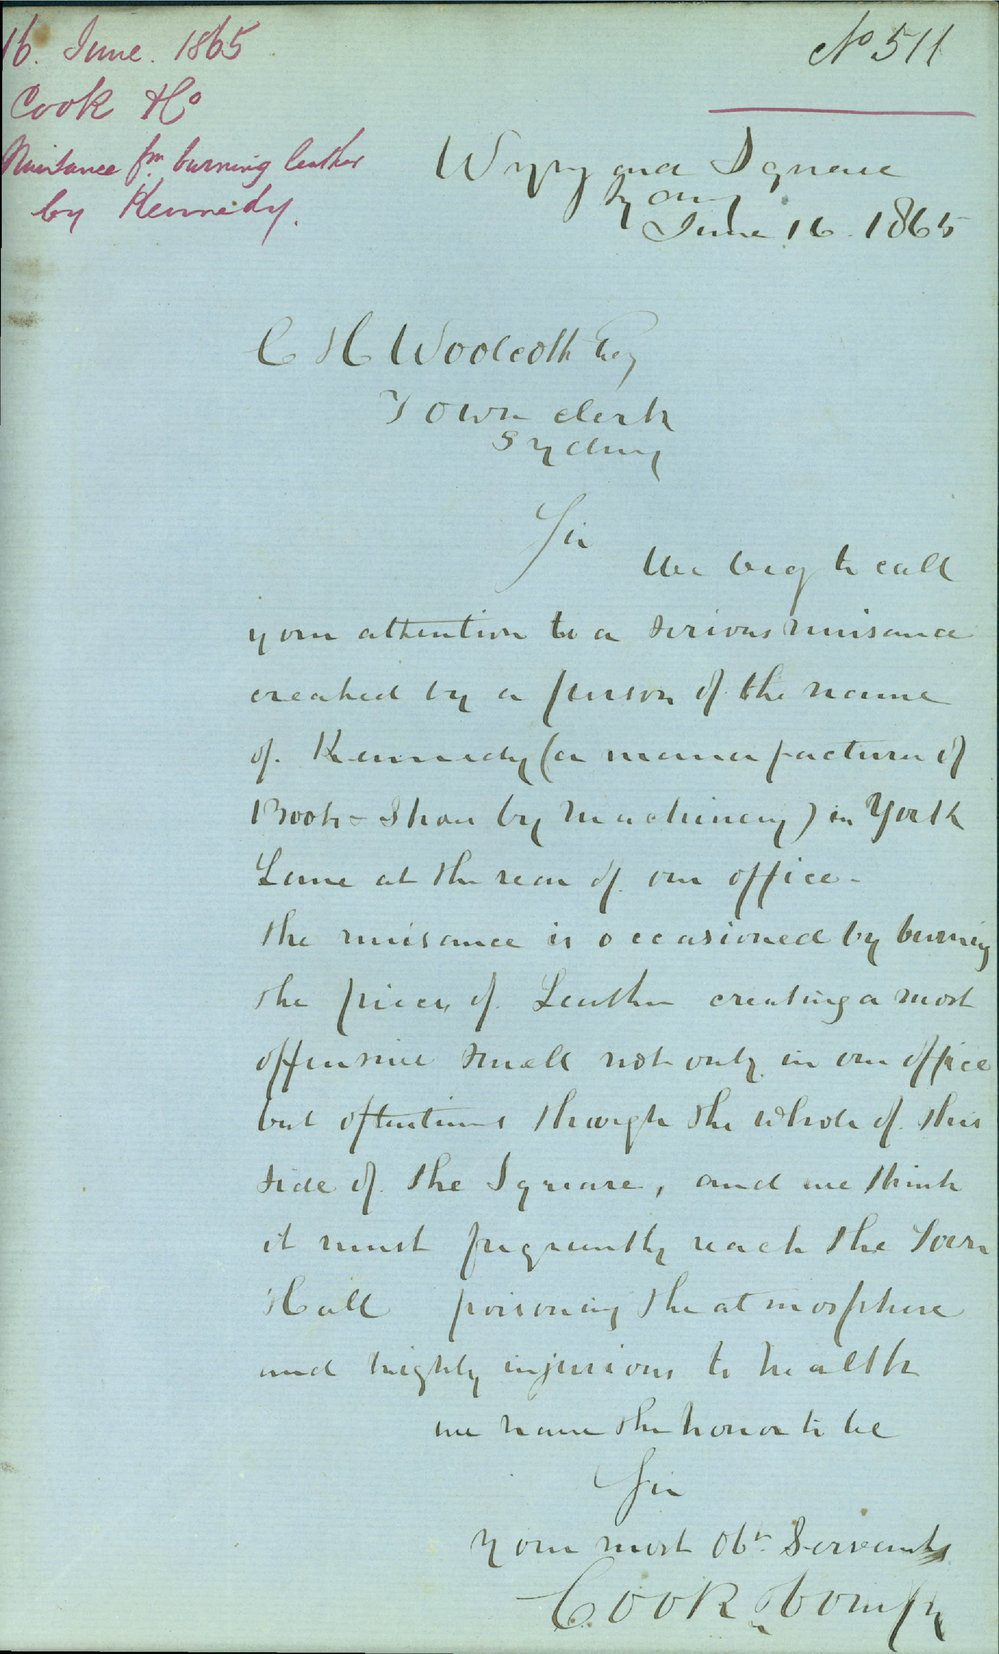 16. June. 1865
Cook & Co
Nuisance fm burning leather
by Kennedy.
No 511
Wynyard Square
Sydney
June 16. 1865
C H Woolcott Esq
Town Clerk
Sydney
Sir
We beg to call
your attention to a serious nuisance
created by a person of the name
of. Kennedy (a manufacturer of
Boots & Shoes by machinery) in York
Lane at the rear of our office -
the nuisance is occasioned by burning
the pieces of Leather creating a most
offensive smell not only in our office
but oftentimes through the whole of this
side of the Square, and we think
it must frequently reach the Town
Hall poisoning the atmosphere
and highly injurious to health
we have the honor to be
Sir
Your most Obt Servants
Cook & Compy